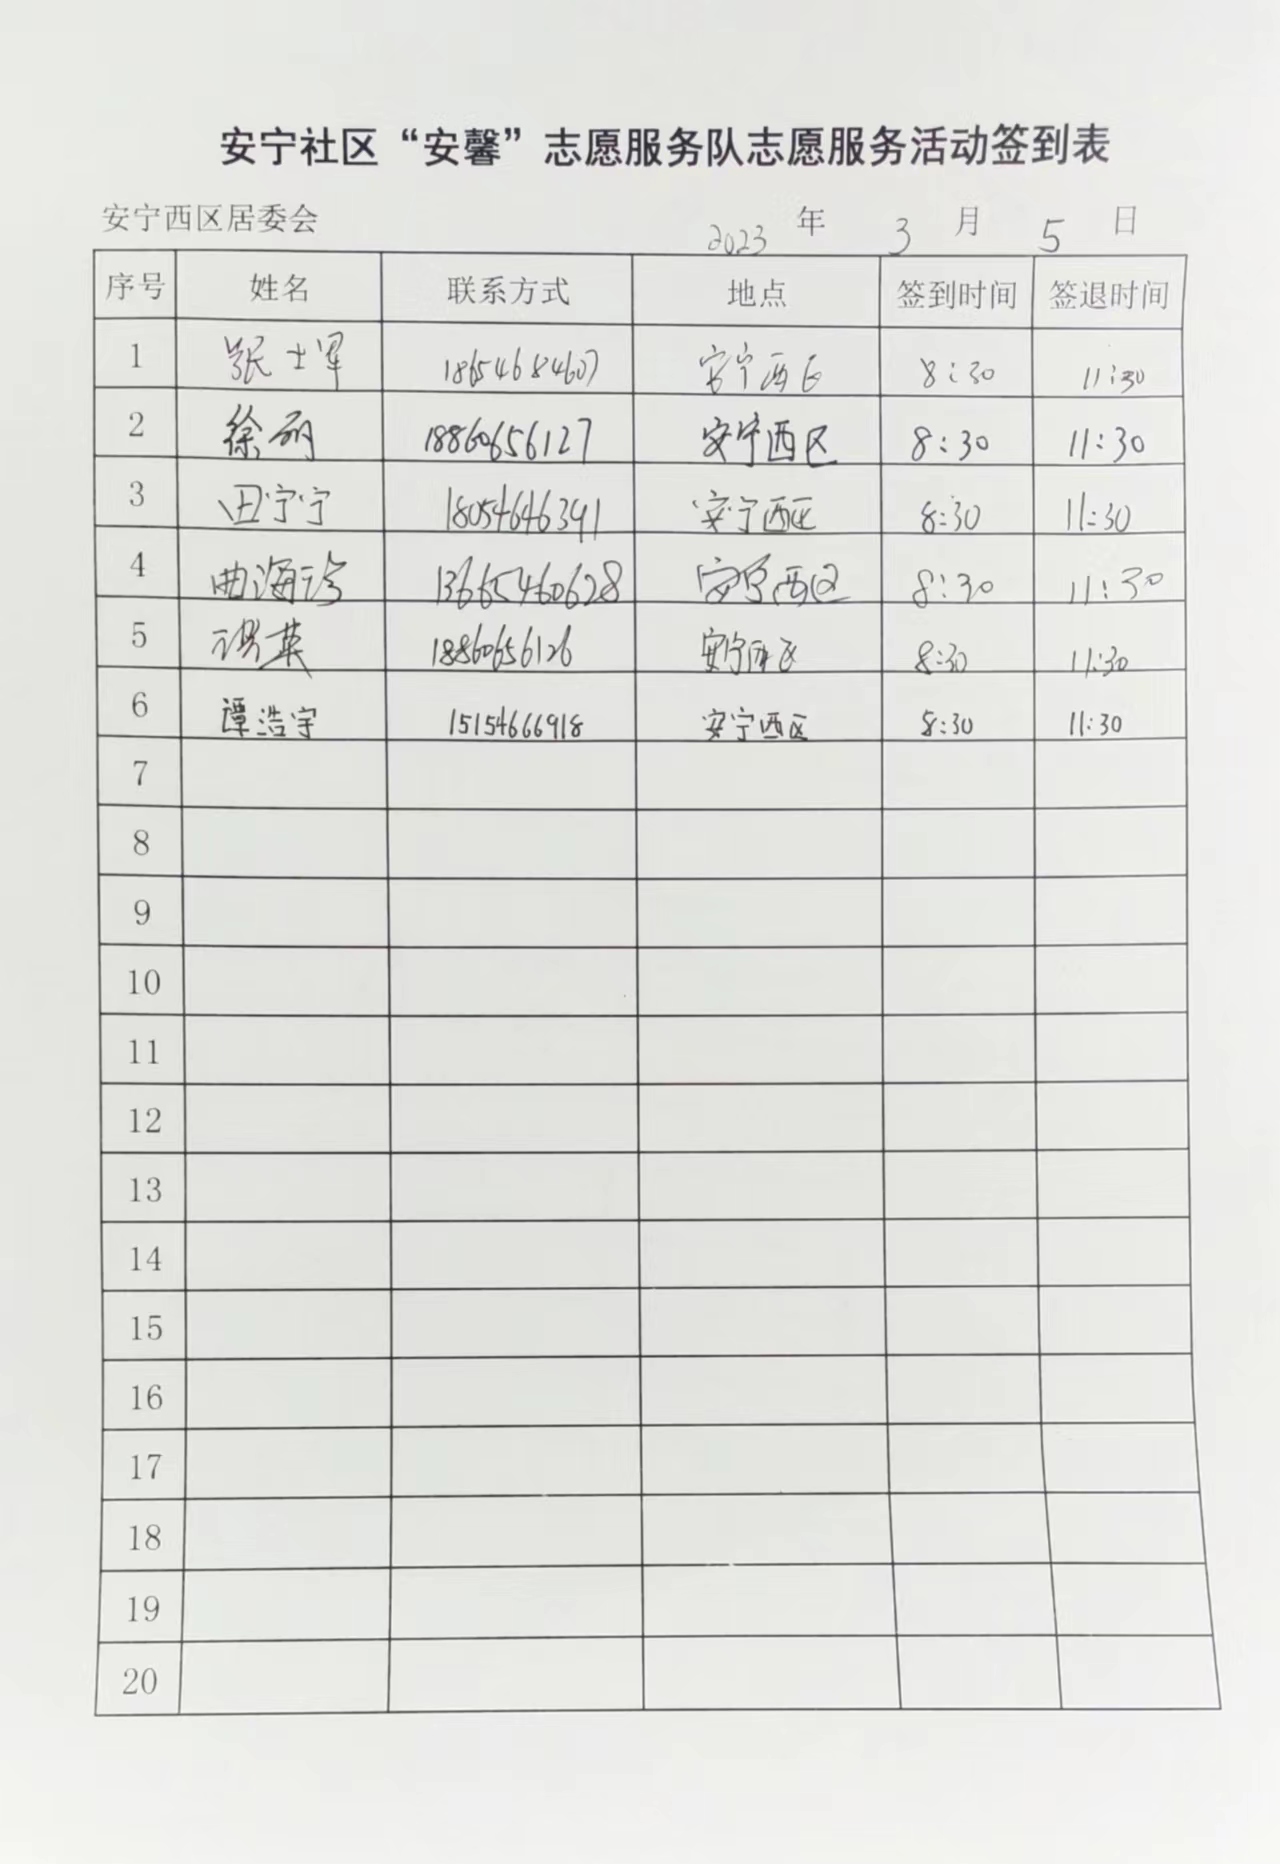 安宁社区“安馨”志愿服务队志愿服务活动签到表
安宁西区居委会 2023 年 3 月 5 日
序号 姓名 联系方式 地点 签到时间 签退时间
1 张士军 18654684607 安宁西区 8:30 11:30
2 徐丽 18860656127 安宁西区 8:30 11:30
3 田宁宁 18054646391 安宁西区 8:30 11:30
4 曲海珍 13665460628 安宁西区 8:30 11:30
5 英 18860656126 安宁西区 8:30 11:30
6 谭浩宇 15154666918 安宁西区 8:30 11:30
7
8
9
10
11
12
13
14
15
16
17
18
19
20